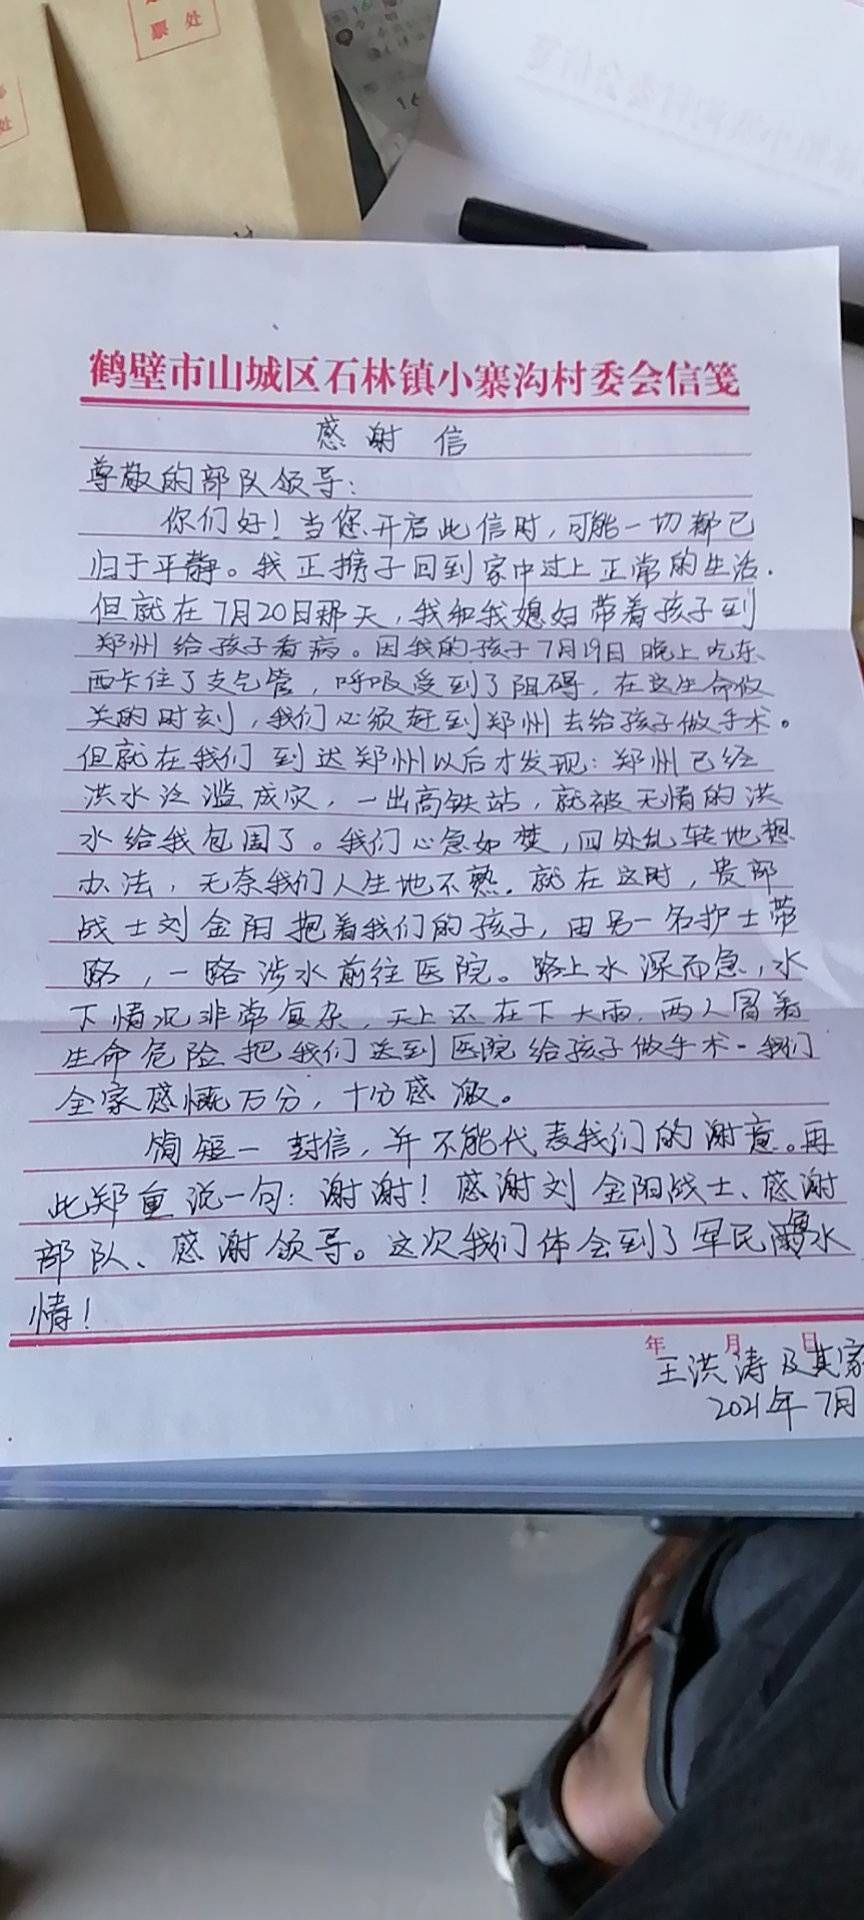 票处
处
16
鹤壁市山城区石林镇小寨沟村委会信笺
感谢信
尊敬的部队领导:
你们好!当您开启此信时,可能一切都已
归于平静。我正携子回到家中过上正常的生活.
但就在7月20日那天,我和我媳妇带着孩子到
郑州给孩子看病。因我的孩子7月19日晚上吃东
西卡住了支气管,呼吸受到了阻碍,在这生命攸
关的时刻,我们必须赶到郑州去给孩子做手术。
但就在我们到达郑州以后才发现:郑州已经
洪水泛滥成灾,一出高铁站,就被无情的洪
水给我包围了。我们心急如焚,四处乱转地想
办法,无奈我们人生地不熟.就在这时,贵部
战士刘金阳抱着我们的孩子,由另一名护士带
路,一路涉水前往医院。路上水深而急,水
下情况非常复杂,天上还在下大雨,两人冒着
生命危险把我们送到医院给孩子做手术.我们
全家感慨万分,十分感激。
简短一封信,并不能代表我们的谢意。再
此郑重说一句:谢谢!感谢刘金阳战士、感谢
部队、感谢领导。这次我们体会到了军民鱼水
情!
年 月 日
王洪涛及其家
2021年7月